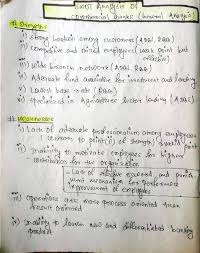 SWOT Analysis of
Commercial Banks (General Analysis)
# Strengths
i) Strong bastion among customers (ASBL, RBB)
ii) competitive and trained employees (weak point but
effective)
iii) Wide branch network (ASBL, RBB)
iv) Adequate fund available for investment and lending
v) Lowest base rate (RBB)
vi) specialized in Agriculture sector lending (ASBL)
# Weaknesses
i) Lack of adequate professionalism among employees
(contrary to point (ii) of strength)
ii) Inability to motivate employees for higher
contribution for the organization
- Lack of effective reward and punish
ment mechanism for performance
improvement of employees
iii) operations are more process oriented than
result oriented
iv) Inability to launch new and differentiated banking
product